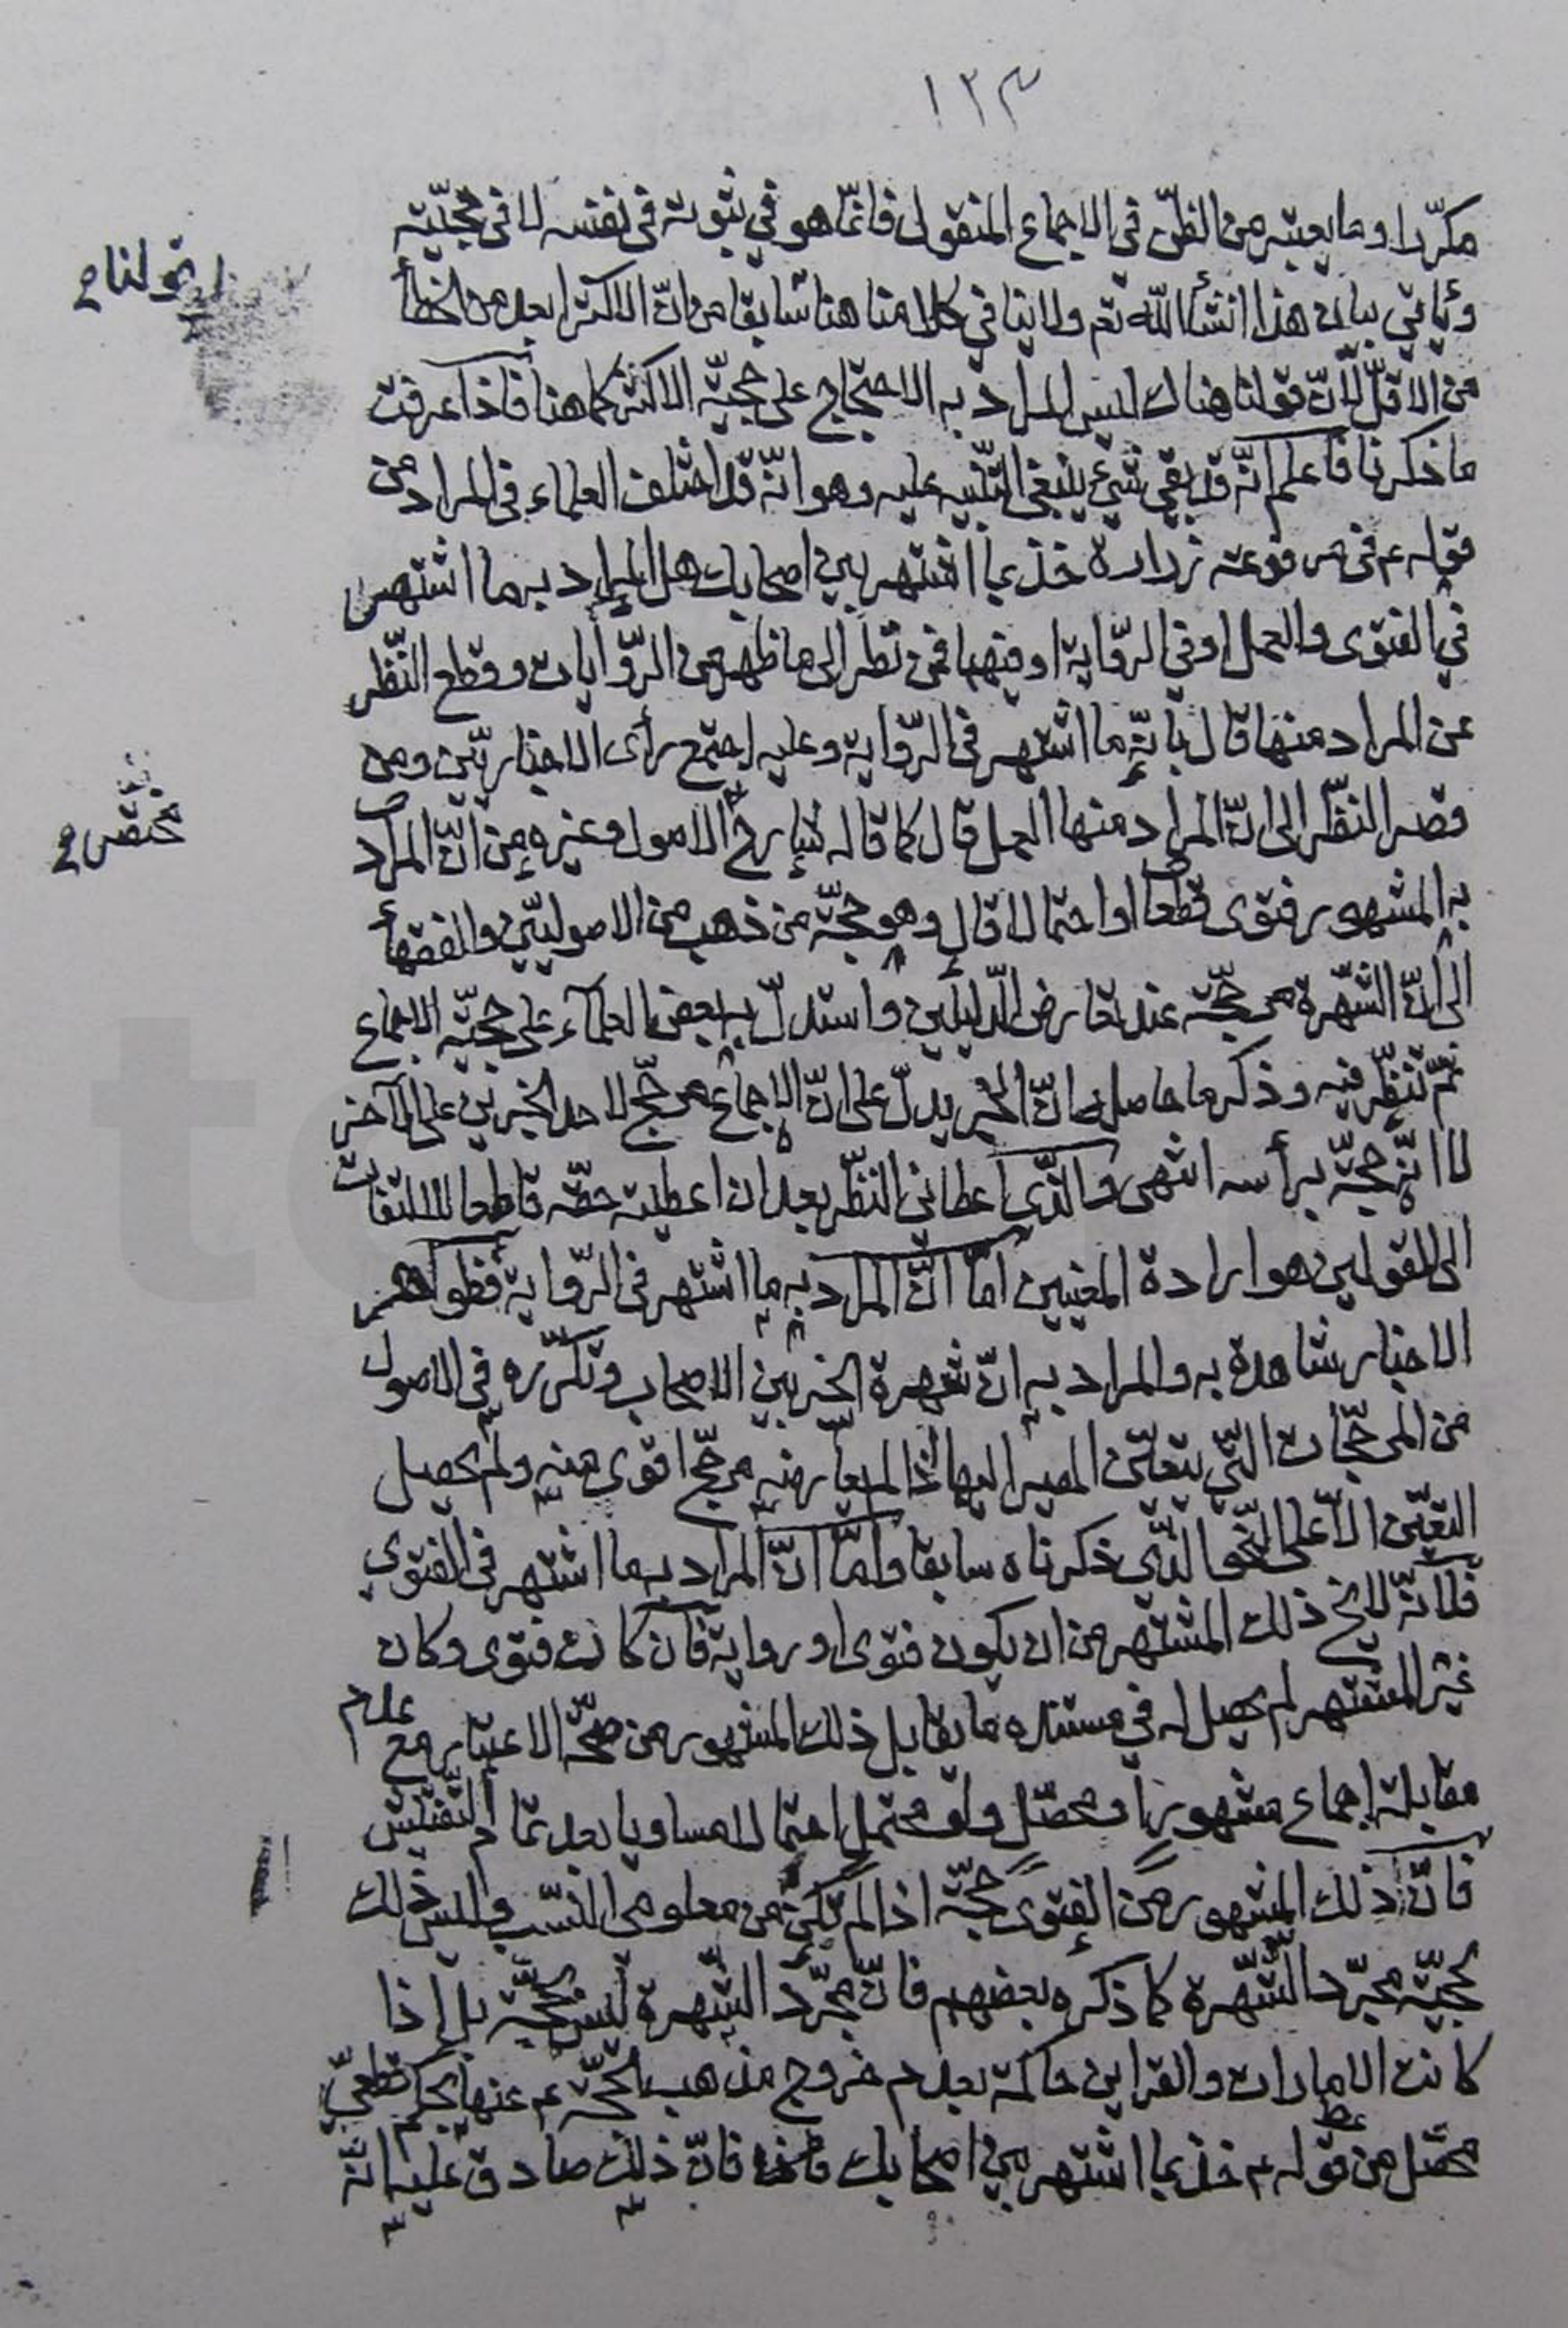 ١٢٣
مكرّرا وما يعتبر من الظنّ في الاجماع المنقول فانّما هو في ثبوته في نفسه لا في حجيّته
وياتي بيان هذا انشأ اللّه تعم ولا ينافي كلامنا هنا سابقا من انّ الاكثر ابعد من الخطأ
قولنا
من الاقلّ لانّ قولنا هناك ليس المراد به الاحتجاج على حجيّة الاكثر كما هنا فاذا عرفت
ما ذكرنا فاعلم انّه قد بقي شيء ينبغي التّنبيه عليه وهو انّه قد اختلف العلماء في المراد من
قوله ع في مرفوعة زرارة خذ بما اشتهر بين اصحابك هل المراد به ما اشتهر
في الفتوى والعمل او في الرّواية او فيهما فمن نظر الى ما ظهر من الرّوايات وقطع النّظر
عن المراد منها قال بانّه ما اشتهر في الرّواية وعليه اجتمع رأى الاخباريّين ومن
قصر النّظر الى انّ المراد منها العمل قال كما قاله شارح الاصول وغيره من انّ المراد
مختصر
به المشهور فتوى قطعا او احتمالا قال وهو حجّة من ذهب من الاصوليّين والفقهأ
الى انّ الشّهرة مرجّحة عند تعارض الدّليلين واستدلّ به بعض العلمآء على حجيّة الاجماع
ثمّ تنظّر فيه وذكر ما حاصله انّ الخبر يدلّ على انّ الاجماع مرجّح لاحد الخبرين على الآخر
لا انّه حجّة برأسه انتهى والّذي اعطاني النّظر بعد ان اعطيته حقّه قاطعا للالتفات
الى القولين هو ارادة المعنيين امّا انّ المراد به ما اشتهر في الرّواية فظواهر
الاخبار شاهدة به والمراد به انّ شهرة الخبر بين الاصحاب وتكرّره في الاصول
من المرجّحات الّتي يتعيّن المصير اليها اذا لم يعارضه مرجّح اقوى منه ولم يحصل
التعيّن الّا على النّحو الّذي ذكرناه سابقا وامّا انّ المراد به ما اشتهر في الفتوى
فلانّه لا يخ ذلك المشتهر من ان يكون فتوى او رواية فان كانت فتوى وكان
غير المشتهر لم يحصل له في مستنده ما يقابل ذلك المشهور من صحّة الاعتبار مع عدم
مقابلة اجماع مشهوريّ او محصّل ولو محتمل احتمالا مساويا بعد تمام التّفتيش
فانّ ذلك المشهور من الفتوى حجّة اذا لم تكن من معلومى النّسب وليس ذلك
بحجيّة مجرّد الشّهرة كما ذكره بعضهم فانّ مجرّد الشّهرة ليس بحجّة بل اذا
كانت الامارات والقراين حاكمة بعدم خروج مذهب الحجّة ع عنها بحكم قطعيّ
محصّل من قوله ع خذ بما اشتهر بين اصحابك فانّ ذلك صادق عليه انّه